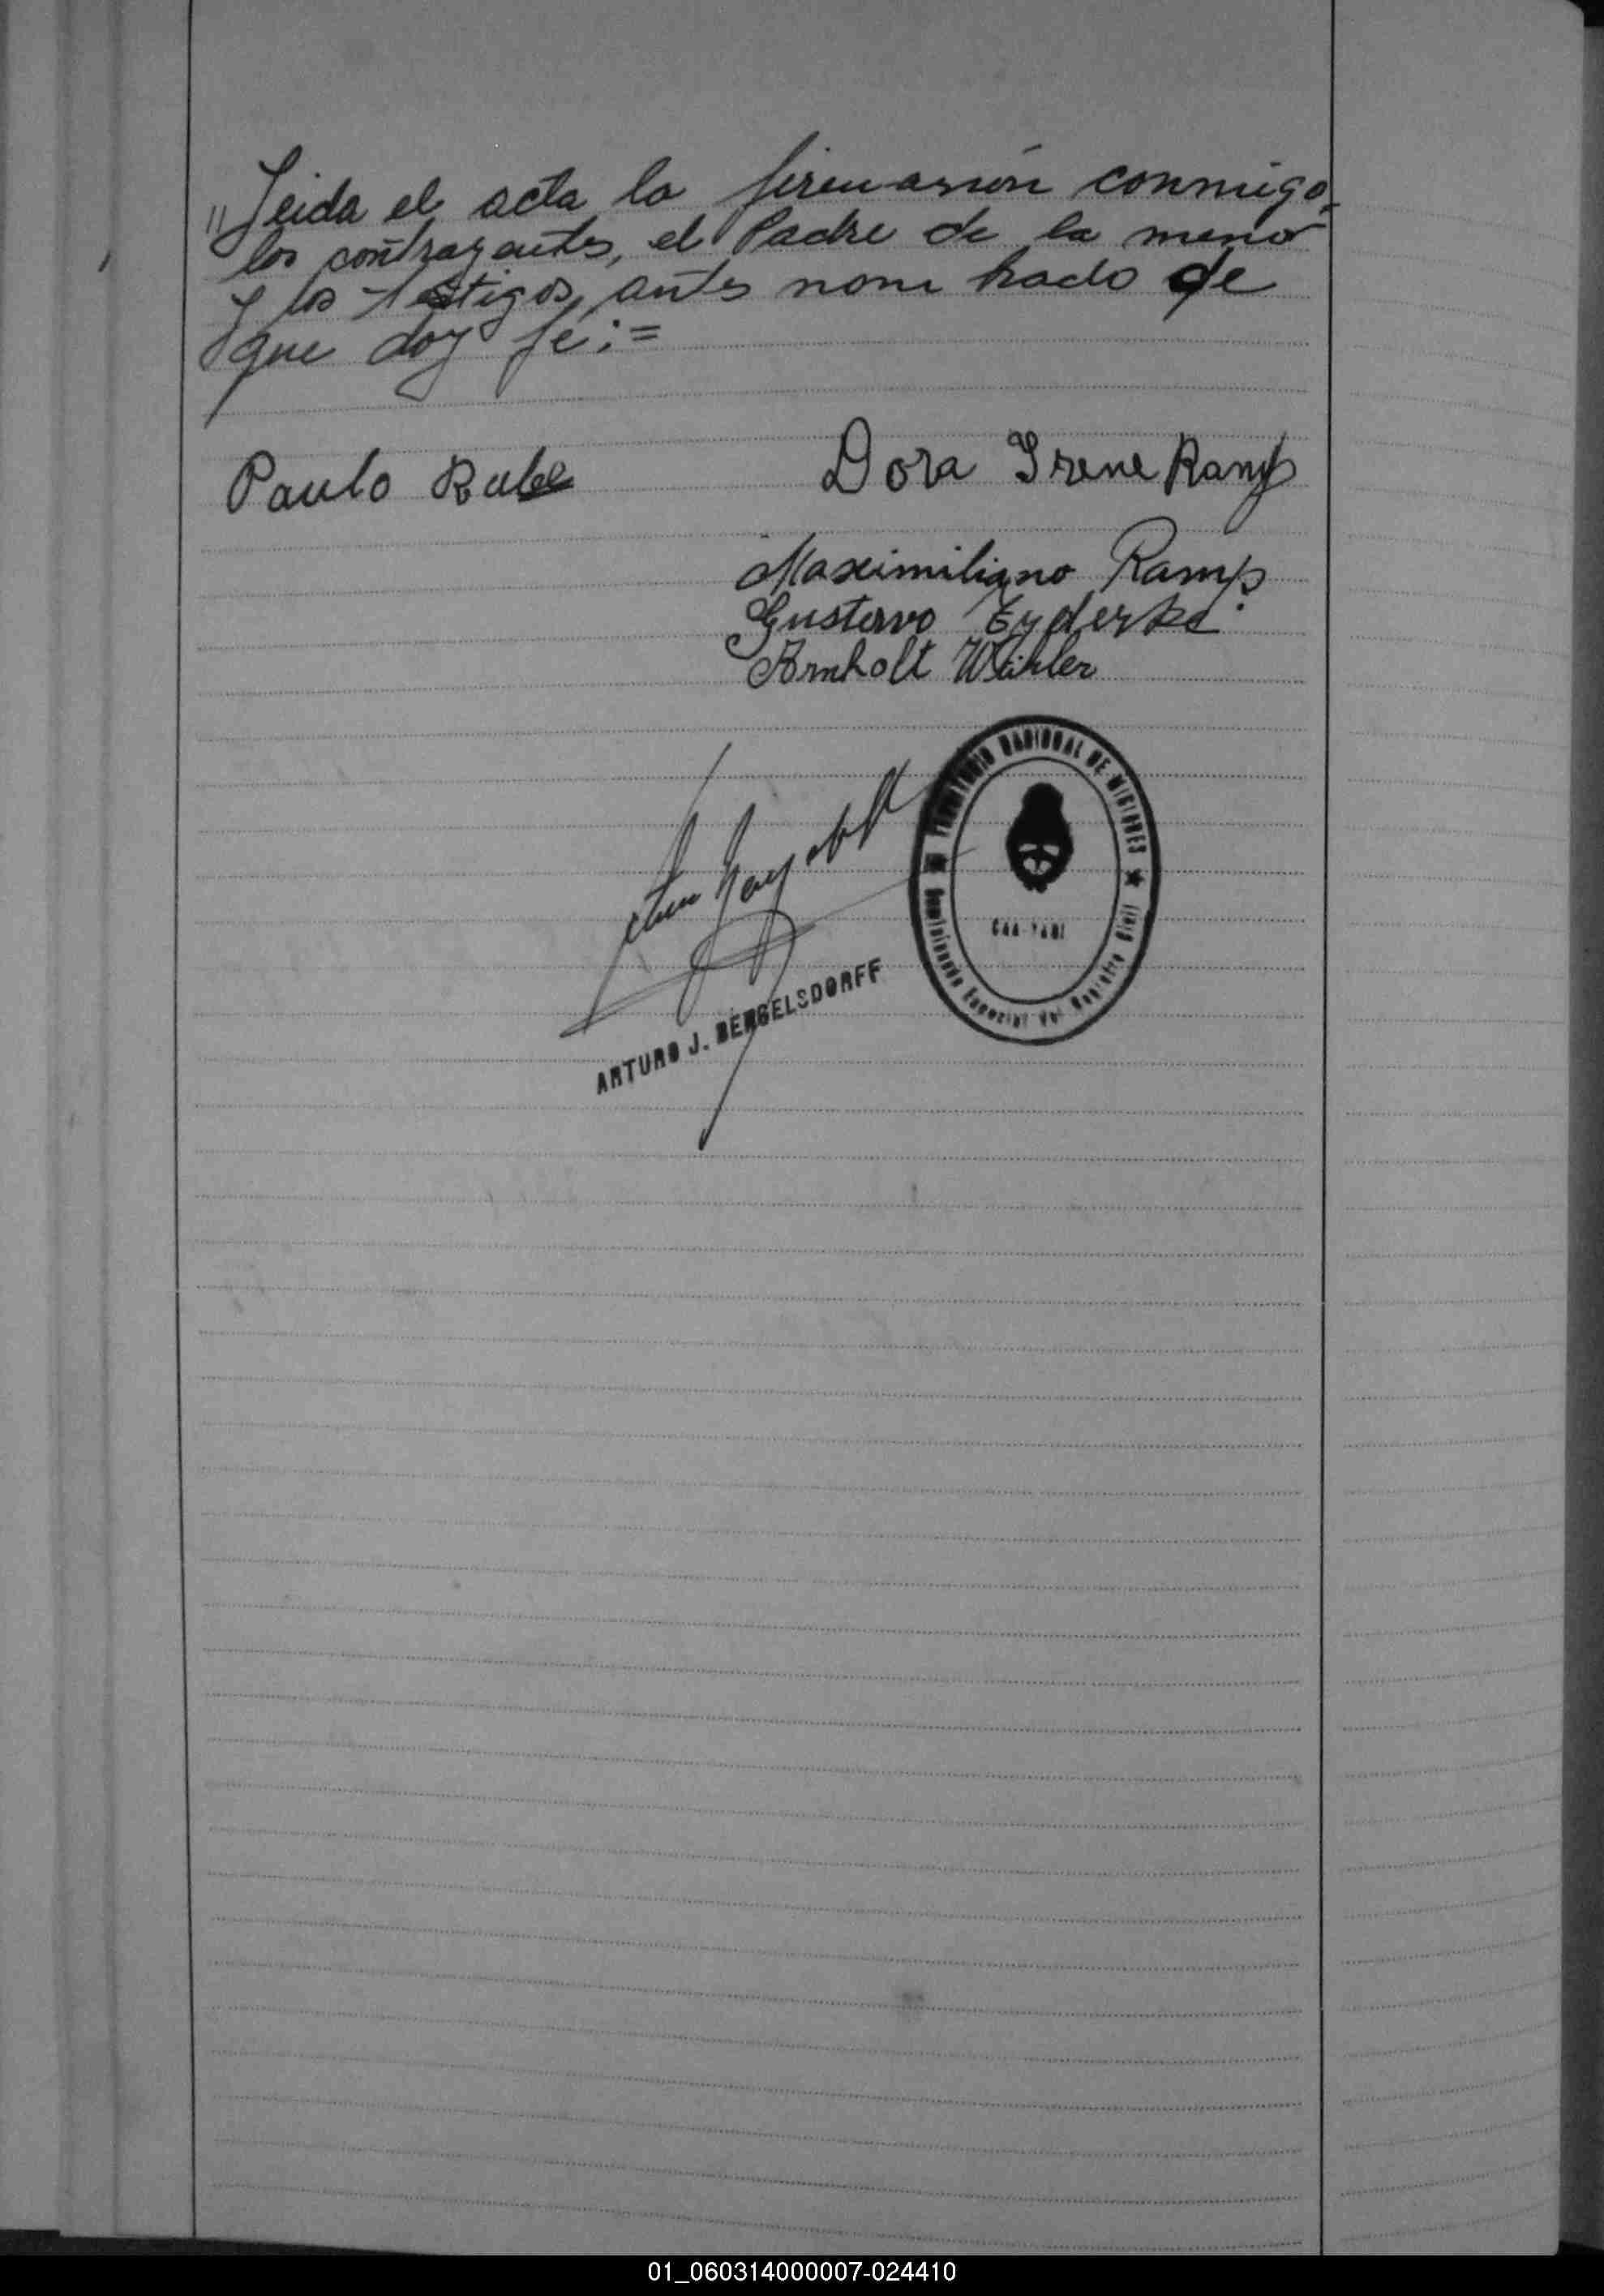 "Leida el acta la firmarón conmigo,
los contrayentes, el Padre de la menor
y los testigos, antes nombrado de
que doy fé:=
Paulo Rabe
Dora Irene Ramp
Maximiliano Ramp
Gustavo
Arnholt Wähler
TERRITORIO NACIONAL DE MISIONES
CAA-YARI
Comisionado Especial del Registro Civil
ARTURO J. BERGELSDORFF
01_060314000007-024410